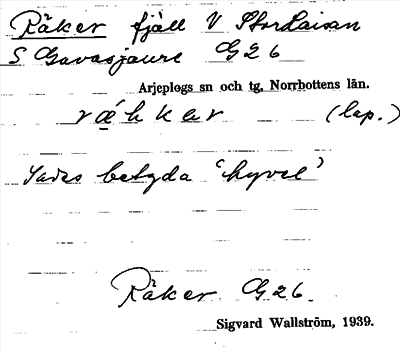 Räker fjäll V Storlaisan
S Gavasjaure G26
Arjeplogs sn och tg, Norrbottens län.
rǽhkar (lap.)
Sades betyda 'hyvel'
Räker G26.
Sigvard Wallström, 1939.